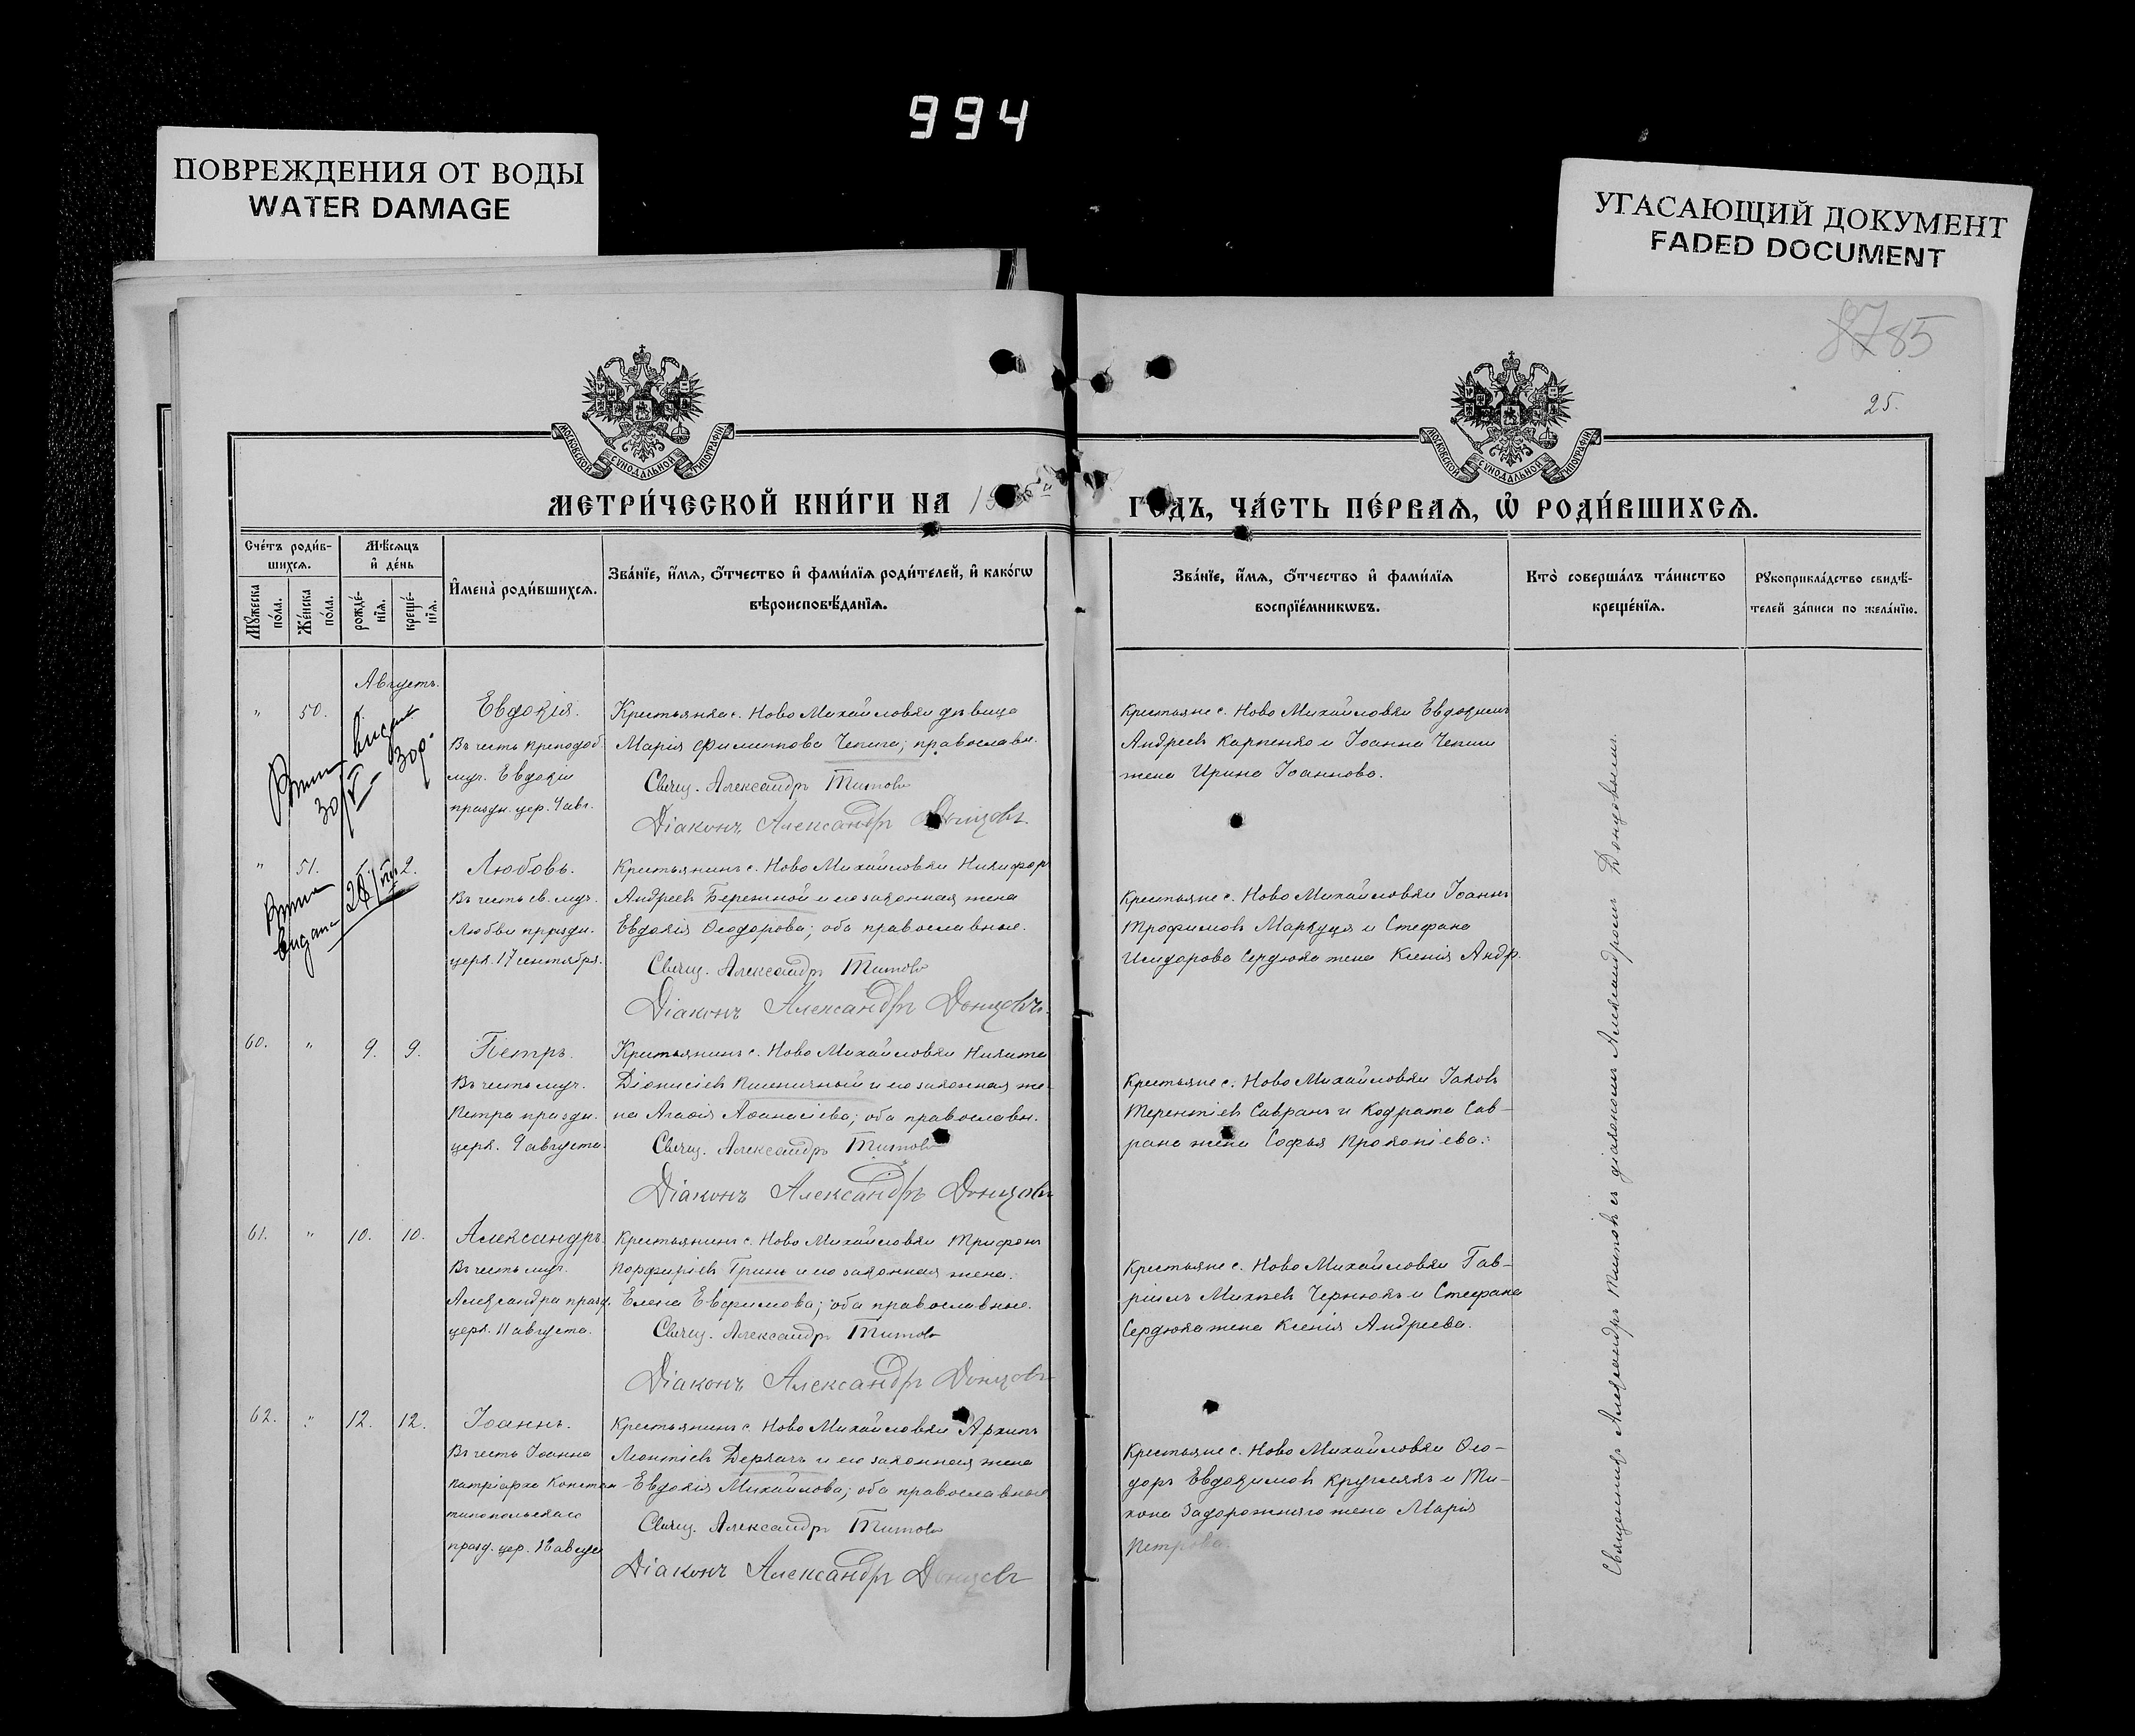 994
ПОВРЕЖДЕНИЯ ОТ ВОДЫ
WATER DAMAGE
УГАСАЮЩИЙ ДОКУМЕНТ
FADED DOCUMENT
85
25.
МОСКОВСКОЙ СѴНОДАЛЬНОЙ ТИПОГРАФІИ
МОСКОВСКОЙ СѴНОДАЛЬНОЙ ТИПОГРАФІИ
МЕТРИ́ЧЕСКОЙ КНИ́ГИ НА
ГОДЪ, ЧА́СТЬ ПЕ́РВАѦ, Ѡ҆ РОДИ́ВШИХСѦ.
Сче́тъ роди́в-
шихсѧ.
Мꙋжеска по́ла.
Же́нска по́ла.
Мѣ́сѧцъ
и҆ де́нь
рожде́-
нїѧ.
креще́-
нїѧ.
И҆мена̀ роди́вшихсѧ.
Зва́нїе, и҆́мѧ, ѻ҆́тчество и҆ фами́лїѧ роди́телей, и҆ како́гѡ
вѣроисповѣ́данїѧ.
Зва́нїе, и҆́мѧ, ѻ҆́тчество и҆ фами́лїѧ
воспрїе́мникѡвъ.
Кто̀ соверша́лъ та́инство
креще́нїѧ.
Рꙋкоприкла́дство свидѣ́-
телей за́писи по жела́нїю.
Августъ.
" 50.
Евдокія.
Въ честь преподоб.
муч. Евдокіи
праздн. цер. 4 авг.
Крестьянка с. Ново Михайловки дѣвица
Марія Филиппова Чепига; православн.
Свящ. Александръ Титовъ
Діаконъ Александръ Донцовъ.
Крестьяне с. Ново Михайловки Евдокимъ
Андреевъ Карпенко и Іоанна Чепиги
жена Ирина Іоаннова.
30/V
" 51. 2.
Любовь.
Въ честь св. муч.
Любви праздн.
церк. 17 сентября.
Крестьянинъ с. Ново Михайловки Никифор
Андреевъ Бережной и его законная жена
Евдокія Ѳеодорова; оба православные.
Свящ. Александръ Титовъ
Діаконъ Александръ Донцовъ.
Крестьяне с. Ново Михайловки Іоаннъ
Трофимовъ Маркуця и Стефана
Исидорова Сердюка жена Ксенія Андр.
видана
60. " 9. 9.
Петръ.
Въ честь муч.
Петра праздн.
церк. 9 августа.
Крестьянинъ с. Ново Михайловки Никита
Діонисіевъ Пшеничный и его законная же-
на Агаѳія Аѳанасіева; оба православн.
Свящ. Александръ Титовъ
Діаконъ Александръ Донцовъ
Крестьяне с. Ново Михайловки Іаковъ
Терентіевъ Савранъ и Кодрата Сав-
рана жена Софья Прокопіева.
61. " 10. 10.
Александръ.
Въ честь муч.
Александра празд.
церк. 11 августа.
Крестьянинъ с. Ново Михайловки Трифонъ
Порфиріевъ Гринь и его законная жена
Елена Евфимова; оба православные.
Свящ. Александръ Титовъ
Діаконъ Александръ Донцовъ
Крестьяне с. Ново Михайловки Гав-
ріилъ Михеевъ Чернюкъ и Стефана
Сердюка жена Ксенія Андреева.
62. " 12. 12.
Іоаннъ.
Въ честь Іоанна
патріарха Констан-
тинопольскаго
празд. цер.
Крестьянинъ с. Ново Михайловки Архипъ
Леонтіевъ Деркачъ и его законная жена
Евдокія Михайлова; оба православные
Свящ. Александръ Титовъ
Діаконъ Александръ Донцовъ
Крестьяне с. Ново Михайловки Ѳео-
доръ Евдокимовъ Круглякъ и Ти-
хона Задорожняго жена Марія
Петрова.
Священникъ Александръ Титовъ съ діакономъ Александромъ Донцовымъ.